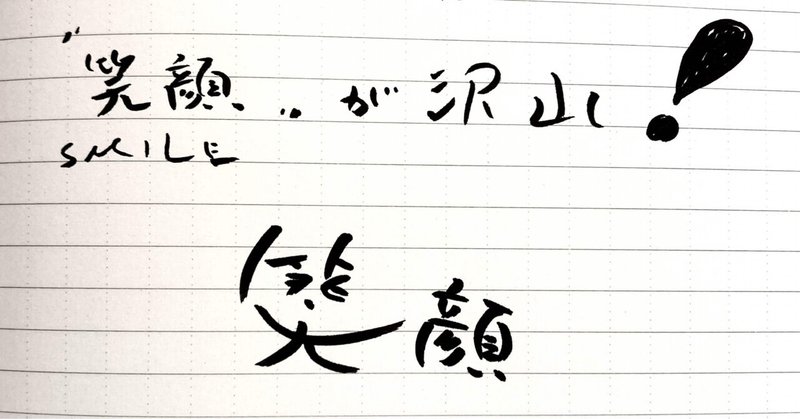 "笑顔"が沢山!
SMILE
笑顔